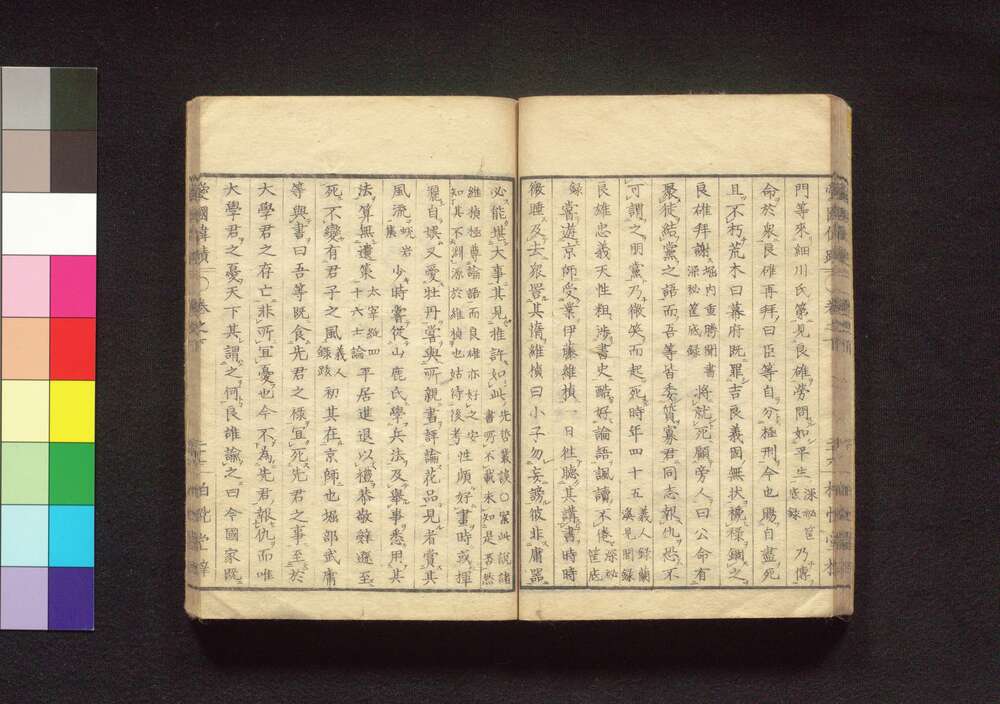 門等來細川氏第見良雄勞問如平生 深秘筐底錄 乃傳
命於衆良雄再拜曰臣等自分極刑今也賜自盡死
且不朽荒木曰幕府既罪吉良義周無狀褫祿錮之
良雄拜謝 堀内重勝聞書 深秘筐底錄 將就死顧旁人曰公命有
聚徒結黨之語而吾等皆委質寡君同志報仇恐不
可謂之朋黨乃微笑而起死時年四十五 義人錄 蘭奚見聞錄
良雄忠義天性粗渉書史酷好論語諷讀不倦 深秘筐底
錄 嘗遊京師受業伊藤維楨一日往聽其講書時時
微睡及去衆詈其惰維楨曰小子勿妄謗彼非庸器
必能堪大事其見推許如此 先哲叢談○案此説諸書所不載未知是否然
維楨極尊論語而良雄亦好之安知其不淵源於維楨也姑待後考 性頗好畫時或揮
灑自娯又愛牡丹嘗與所親書評論花品見者賞其
風流 蛻岩集 少時嘗從山鹿氏學兵法及舉事悉用其
法算無遺策 太宰純四十六士論 平居進退以禮恭敬辭遜至
死不變有君子之風 義人錄跋 初其在京師也堀部武庸
等與書曰吾等既食先君之祿宜死先君之事至於
大學君之存亡非所宜憂也今不為先君報仇而唯
大學君之憂天下其謂之何良雄諭之曰今國家既